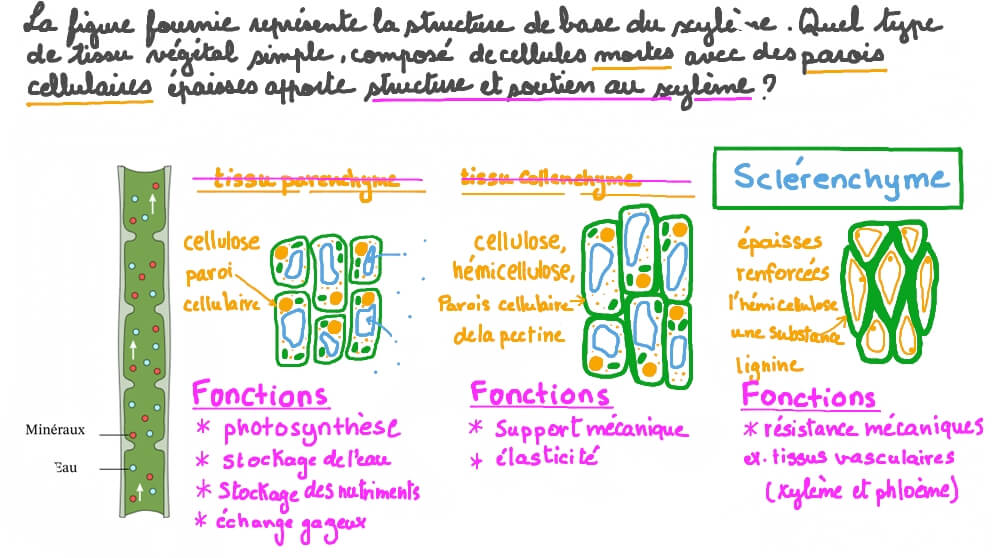 La figure fournie représente la structure de base du xylème. Quel type
de tissu végétal simple, composé de cellules mortes avec des parois
cellulaires épaisses apporte structure et soutien au xylème ?
tissu parenchyme
cellulose
paroi
cellulaire
Fonctions
* photosynthèse
* stockage de l'eau
* Stockage des nutriments
* échange gazeux
tissu collenchyme
cellulose,
hémicellulose,
Parois cellulaire
de la pectine
Fonctions
* Support mécanique
* élasticité
Sclérenchyme
épaisses
renforcées
l'hémicellulose
une substance
lignine
Fonctions
* résistance mécaniques
ex. tissus vasculaires
(xylème et phloème)
Minéraux
Eau